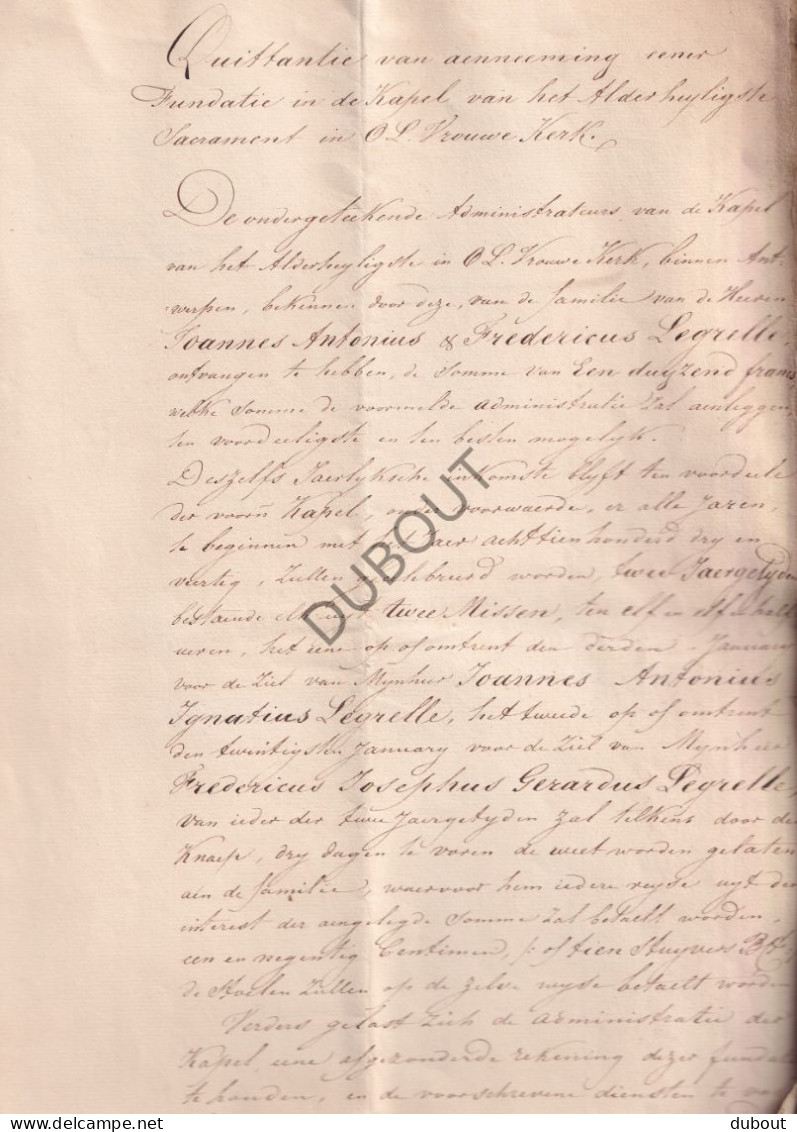 Quittantie van aenneeming eener
Fundatie in de Kapel van het Alderheyligste
Sacrament in O L. Vrouwe Kerk.
De ondergeteekende Administrateurs van de Kapel
van het Alderheyligste in O L. Vrouwe Kerk, binnen Ant-
werpen, bekennen door deze, van de familie van de Heeren
Joannes Antonius & Fredericus Legrelle,
ontvangen te hebben, de somme van Een duyzend francs,
welke somme de voormelde administratie zal aenleggen
ten voordeeligste en ten besten mogelyk.
Deszelfs Jaerlyksche inkomste blyft ten voordeele
der voorn Kapel, onder voorwaerde, er alle Jaren,
te beginnen met het Jaer achttienhonderd dry en
veertig, zullen gecelebreerd worden, twee Jaergetyden
bestaende elk uyt twee Missen, ten elf en elf en half
ueren, het eene op of omtrent den derden January
voor de Ziel van Mynheer Joannes Antonius
Ignatius Legrelle, het tweede op of omtrent
den twintigsten January voor de Ziel van Mynheer
Fredericus Josephus Gerardus Legrelle,
van ieder der twee Jaergetyden zal telkens door den
Knaep, dry dagen te voren de weet worden gelaten
aen de familie, waervoor hem iedere reyse uyt den
interest der aengelegde somme zal betaelt worden,
een en negentig Centimen, of tien Stuyvers
de Stoelen zullen op de zelve wyse betaelt worden
Verders gelast zich de administratie der
Kapel, eene afgezonderde rekening dezer fundatie
te houden, en de voorschrevene diensten te
DUBOUT
dubout